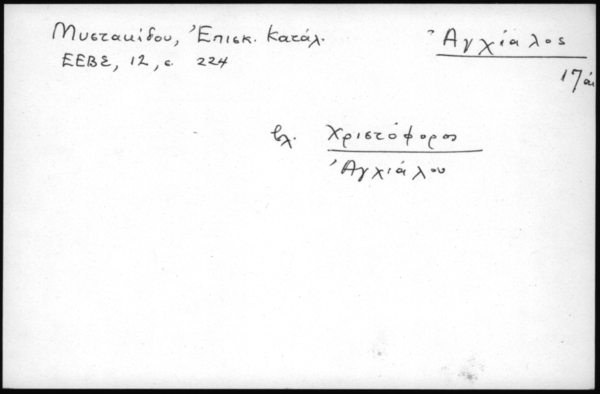 Μυστακίδου, Ἐπισκ. Κατάλ.
ΕΕΒΣ, 12, σ. 224
Ἀγχίαλος
17
βλ. Χριστόφορος
Ἀγχιάλου